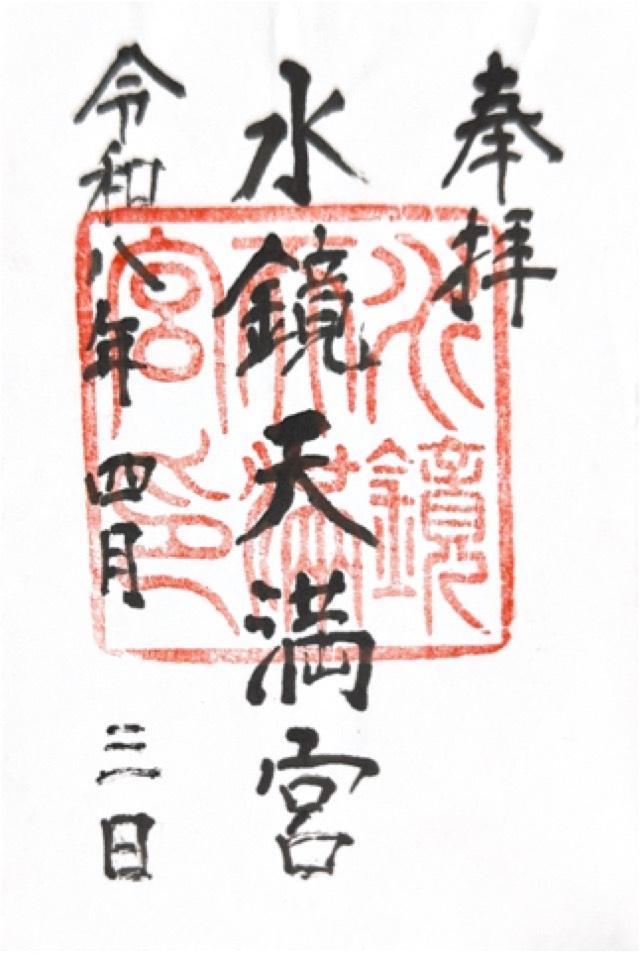 奉拝
水鏡天満宮
令和八年 四月 三日
水鏡
天満
宮印